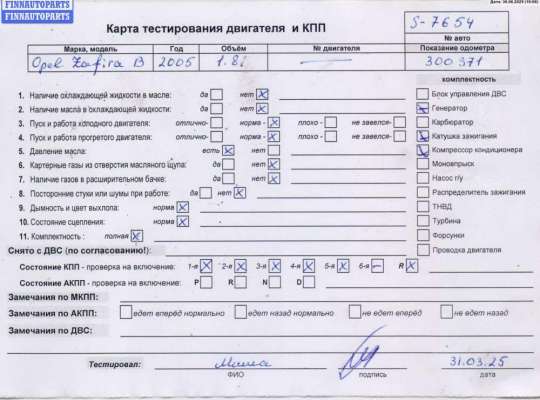 FINNAUTOPARTS
FINNAUTOPARTS
Карта тестирования двигателя и КПП
S-7654
№ авто
Марка, модель Год Объём № двигателя Показание одометра
Opel Zafira B 2005 1.8i — 300 371
комплектность
1. Наличие охлаждающей жидкости в масле: да нет Блок управления ДВС
2. Наличие масла в охлаждающей жидкости: да нет Генератор
3. Пуск и работа холодного двигателя: отлично- норма - плохо - не завелся- Карбюратор
4. Пуск и работа прогретого двигателя: отлично- норма - плохо - не завелся- Катушка зажигания
5. Давление масла: есть нет Компрессор кондиционера
6. Картерные газы из отверстия масляного щупа: да нет Моновпрыск
7. Наличие газов в расширительном бачке: да нет Насос г/у
8. Посторонние стуки или шумы при работе: да нет Распределитель зажигания
9. Дымность и цвет выхлопа: норма ТНВД
10. Состояние сцепления: норма Турбина
11. Комплектность : полная Форсунки
Снято с ДВС (по согласованию!): Проводка двигателя
Состояние КПП - проверка на включение: 1-я 2-я 3-я 4-я 5-я 6-я R
Состояние АКПП - проверка на включение: P R N D
Замечания по МКПП:
Замечания по АКПП: едет вперёд нормально едет назад нормально не едет вперёд не едет назад
Замечания по ДВС:
Тестировал: 31.03.25
ФИО подпись дата